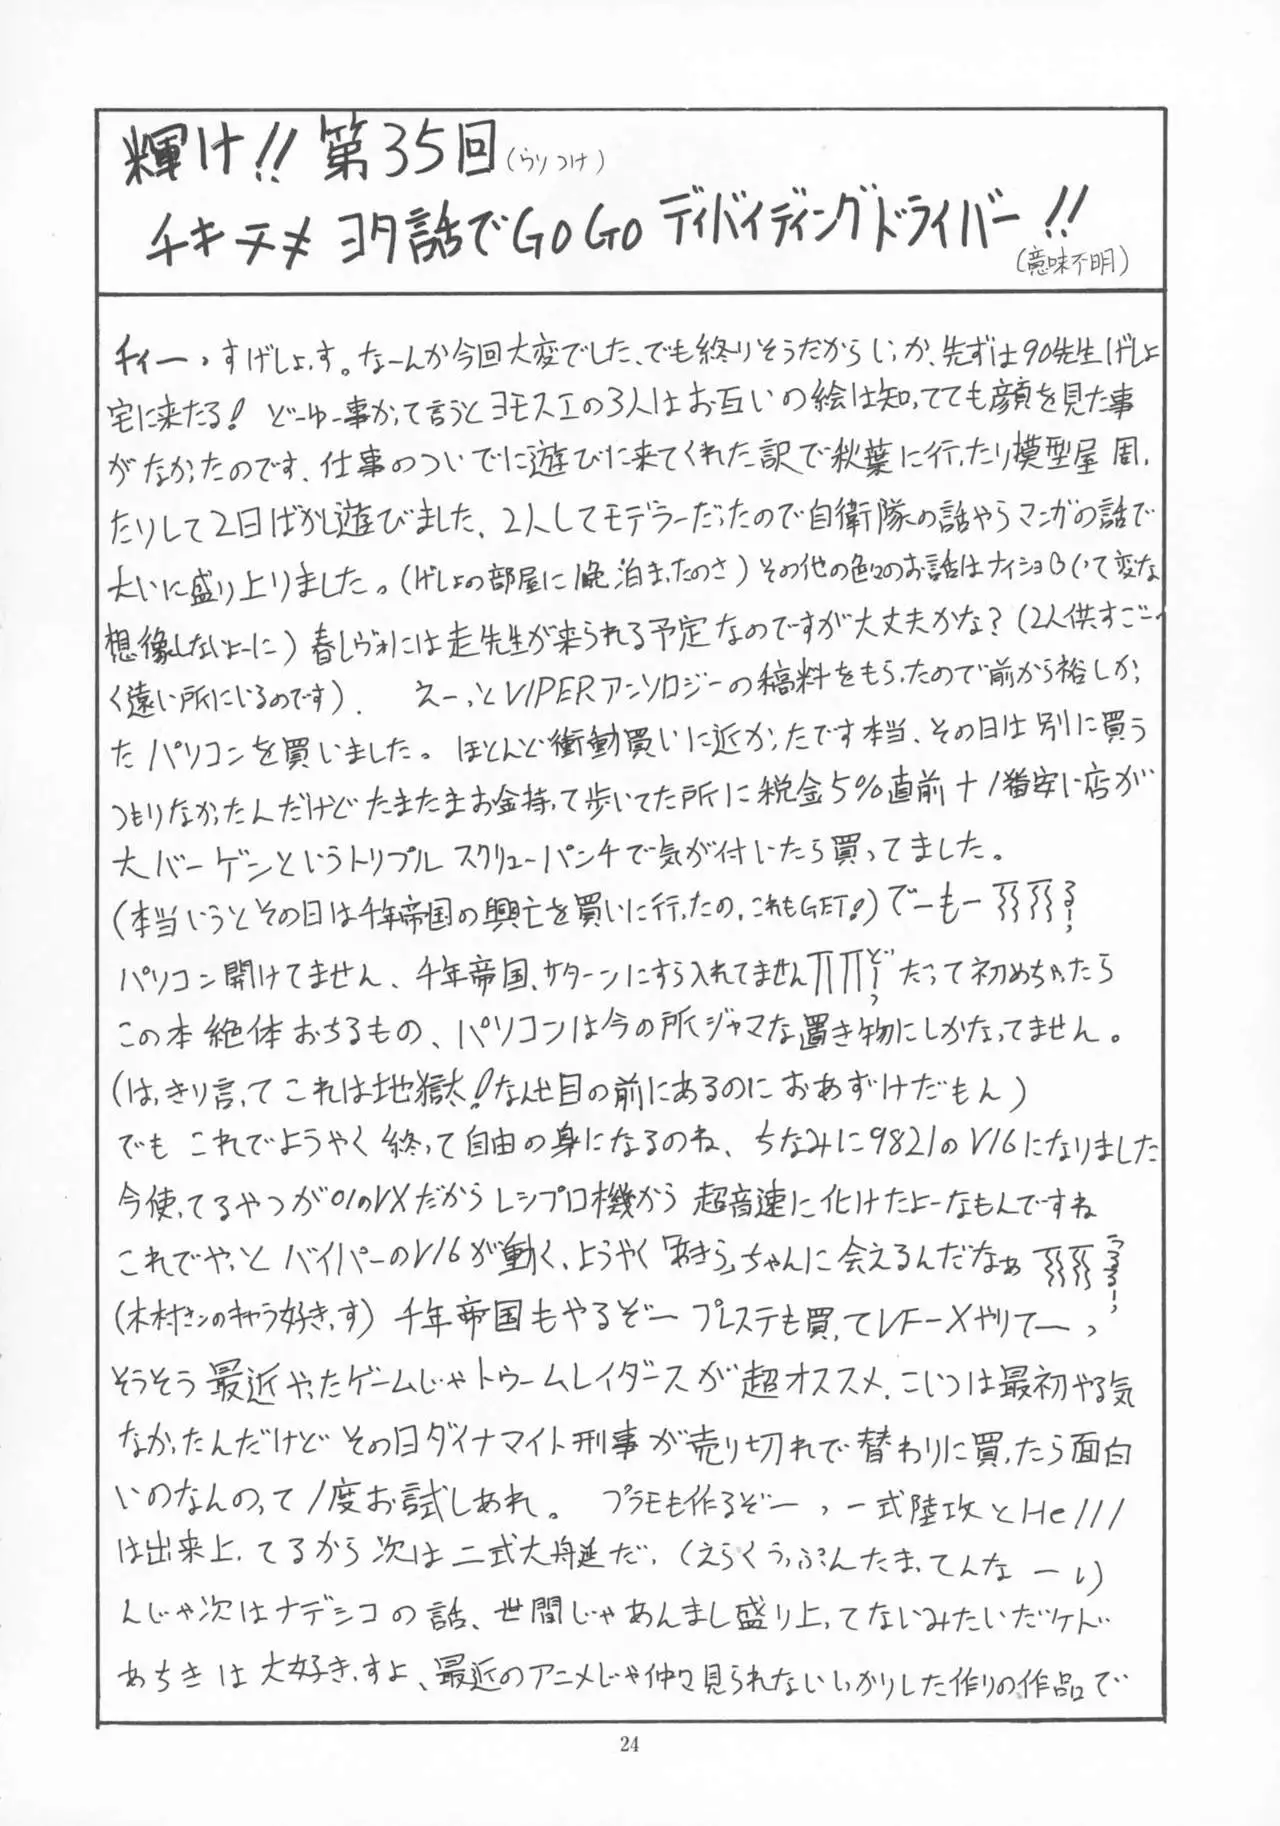 輝け!! 第35回(うりつけ)
チキチメ ヨタ話でGoGoディバイディングドライバー!!
(意味不明)
チィーッすげしょっす。なーんか今回大変でした、でも終りそうだからいっか、先ずは90先生げしょ
宅に来たる! どーゆー事かって言うとヨモスエの3人はお互いの絵は知ってても顔を見た事
がなかったのです、仕事のついでに遊びに来てくれた訳で秋葉に行ったり模型屋周っ
たりして2日ばかし遊びました、2人してモデラーだったので自衛隊の話やらマンガの話で
大いに盛り上りました。(げしょの部屋に1晩泊まったのさ)その他の色々のお話はナイショB(って変な
想像しないよーに)春レヴォには走先生が来られる予定なのですが大丈夫かな?(2人供すごーっ
く遠い所にいるのです). えーっとVIPERアンソロジーの稿料をもらったので前から裕しかっ
たパソコンを買いました。ほとんど衝動買いに近かったです本当、その日は別に買う
つもりなかったんだけどたまたまお金持って歩いてた所に税金5%直前+1番安い店が
大バーゲンというトリプルスクリューパンチで気が付いたら買ってました。
(本当いうとその日は千年帝国の興亡を買いに行ったの,これもGET!)でーもー
パソコン開けてません、千年帝国、サターンにすら入れてません だって初めちゃったら
この本絶体おちるもの、パソコンは今の所ジャマな置き物にしかなってません。
(はっきり言ってこれは地獄だ!なんせ目の前にあるのにおあずけだもん)
でもこれでようやく終って自由の身になるのね、ちなみに9821のV16になりました
今使ってるやつが01のVXだからレシプロ機から超音速に化けたよーなもんですね
これでやっとバイパーのV16が動く、ようやく「あきら」ちゃんに会えるんだなぁ
(木村さンのキャラ好きっす)千年帝国もやるぞー プレステも買ってVF-Xやりてーっ
そうそう最近やったゲームじゃトゥームレイダースが超オススメ.こいつは最初やる気
なかったんだけどその日ダイナマイト刑事が売り切れで替わりに買ったら面白
いのなんのって1度お試しあれ。 プラモも作るぞーっ 一式陸攻とHe111
は出来上ってるから次は二式大舟延だ、(えらくうっぷんたまってんなーい)
んじゃ次はナデシコの話、世間じゃあんまし盛り上ってないみたいだケド
あちきは大好きっすよ、最近のアニメじゃ仲々見られないしっかりした作りの作品で
24